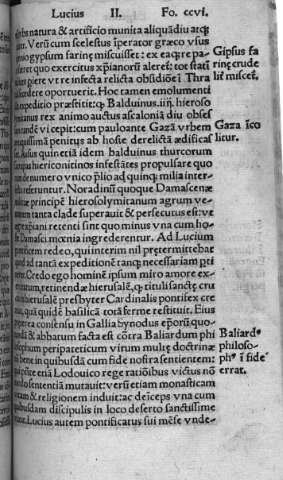 Lucius II. Fo. ccvi.
natura & artificio munita aliquādiu atq;
Verū cum scelestus īperator græco vsus
gipso farinę miscuisset: ex eaq; re pa-
quo exercitus xp̄ianorū aleret: tot statī
piere vt re infecta relicta obsidiōe Thra
oportuerit. Hoc tamen emolumenti
expeditio præstitit: Balduinus .iii. hieroso
rex animo auctus ascaloniā diu obses
tandē vi cepit: cum paulo ante Gazā vrbem
penitus ab hoste derelictā ædificas
Ausus quin etiā idem balduinus thurcorum
hiericontinos infestātes propulsare quo
numero vnico p̄lio ad quinq; milia inter-
referuntur. Noradinū quoque Damascenæ
principē hierosolymitanum agrum ve-
tanta clade superauit & persecutus est: vt
retenti sint quo minus vna cum ho
Damasci mœnia ingrederentur. Ad Lucium
redeo, qui interim nil prętermittebat
ad tantā expeditionē tanq; necessariam p̄ti
Credo ego hominē ipsum miro amore ex-
retinendæ hierusalē, q; tituli sanctę cru
hierusalē presbyter Cardinalis pontifex cre
quā quidē basilicā totā ferme restituit. Eius
opera consensu in Gallia synodus ep̄orū quo-
& abbatum facta est cōtra Baliardum phi
peripateticum virum multę doctrinæ
bene in quibusdā cum fide nostra sentientem:
etiā Lodouico rege ratiōibus victus nō
sententiā mutauit: verū etiam monasticam
& religionem induit: ac deīceps vna cum
quibusdam discipulis in loco deserto sanctissime
Lucius autem pontificatus sui mēse vnde-
Gipsus fa
rinę crude
lit miscet.
Gaza īco
litur.
Baliardꝰ
philoso-
phꝰ ī fide
errat.